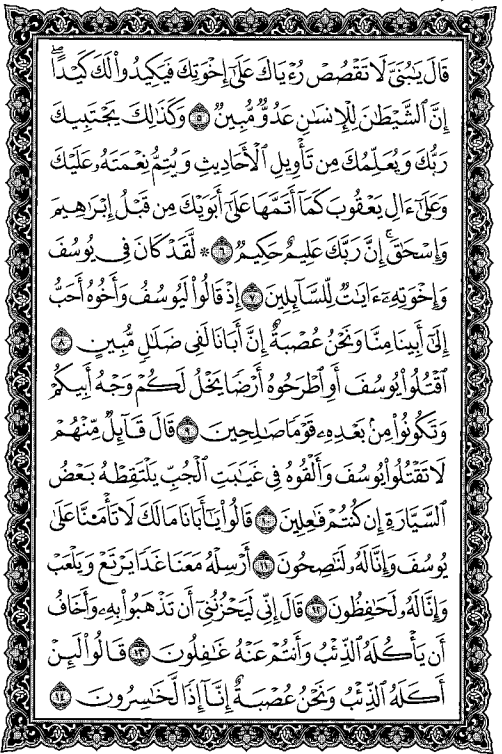 قَالَ يَٰبُنَيَّ لَا تَقْصُصْ رُءْيَاكَ عَلَىٰٓ إِخْوَتِكَ فَيَكِيدُوا۟ لَكَ كَيْدًا ۖ
إِنَّ ٱلشَّيْطَٰنَ لِلْإِنسَٰنِ عَدُوٌّ مُّبِينٌ ٥ وَكَذَٰلِكَ يَجْتَبِيكَ
رَبُّكَ وَيُعَلِّمُكَ مِن تَأْوِيلِ ٱلْأَحَادِيثِ وَيُتِمُّ نِعْمَتَهُۥ عَلَيْكَ
وَعَلَىٰٓ ءَالِ يَعْقُوبَ كَمَآ أَتَمَّهَا عَلَىٰٓ أَبَوَيْكَ مِن قَبْلُ إِبْرَٰهِيمَ
وَإِسْحَٰقَ ۚ إِنَّ رَبَّكَ عَلِيمٌ حَكِيمٌ ٦ * لَّقَدْ كَانَ فِى يُوسُفَ
وَإِخْوَتِهِۦٓ ءَايَٰتٌ لِّلسَّآئِلِينَ ٧ إِذْ قَالُوا۟ لَيُوسُفُ وَأَخُوهُ أَحَبُّ
إِلَىٰٓ أَبِينَا مِنَّا وَنَحْنُ عُصْبَةٌ إِنَّ أَبَانَا لَفِى ضَلَٰلٍ مُّبِينٍ ٨
ٱقْتُلُوا۟ يُوسُفَ أَوِ ٱطْرَحُوهُ أَرْضًا يَخْلُ لَكُمْ وَجْهُ أَبِيكُمْ
وَتَكُونُوا۟ مِنۢ بَعْدِهِۦ قَوْمًا صَٰلِحِينَ ٩ قَالَ قَآئِلٌ مِّنْهُمْ
لَا تَقْتُلُوا۟ يُوسُفَ وَأَلْقُوهُ فِى غَيَٰبَتِ ٱلْجُبِّ يَلْتَقِطْهُ بَعْضُ
ٱلسَّيَّارَةِ إِن كُنتُمْ فَٰعِلِينَ ١٠ قَالُوا۟ يَٰٓأَبَانَا مَا لَكَ لَا تَأْمَ۫نَّا عَلَىٰ
يُوسُفَ وَإِنَّا لَهُۥ لَنَٰصِحُونَ ١١ أَرْسِلْهُ مَعَنَا غَدًا يَرْتَعْ وَيَلْعَبْ
وَإِنَّا لَهُۥ لَحَٰفِظُونَ ١٢ قَالَ إِنِّى لَيَحْزُنُنِىٓ أَن تَذْهَبُوا۟ بِهِۦ وَأَخَافُ
أَن يَأْكُلَهُ ٱلذِّئْبُ وَأَنتُمْ عَنْهُ غَٰفِلُونَ ١٣ قَالُوا۟ لَئِنْ
أَكَلَهُ ٱلذِّئْبُ وَنَحْنُ عُصْبَةٌ إِنَّآ إِذًا لَّخَٰسِرُونَ ١٤